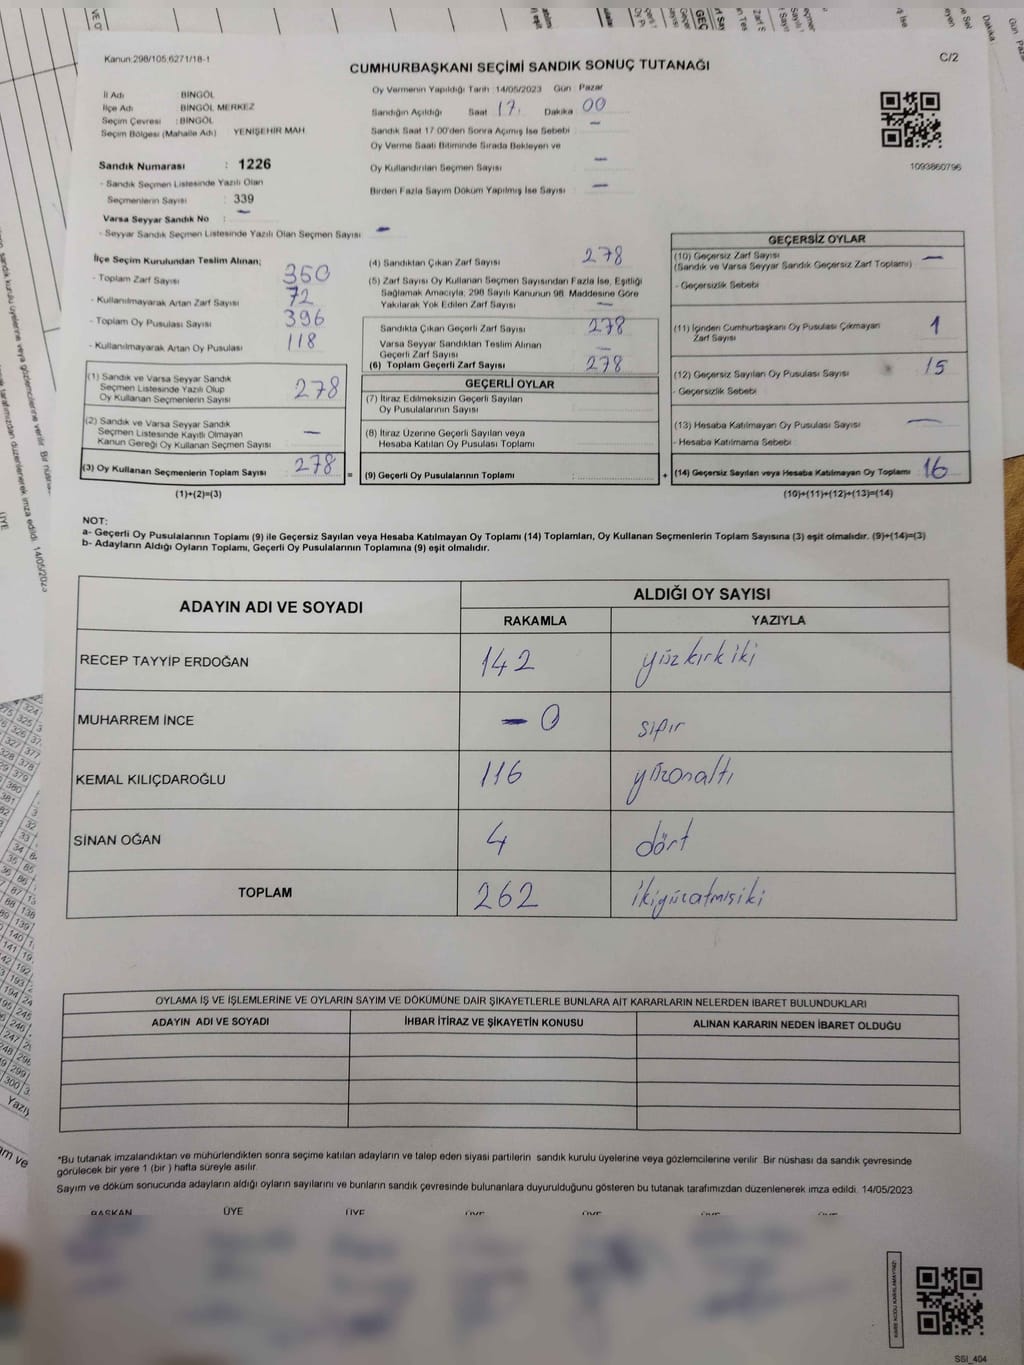 Kanun:298/105.6271/18-1
C/2
CUMHURBAŞKANI SEÇİMİ SANDIK SONUÇ TUTANAĞI
İl Adı BİNGÖL
İlçe Adı BİNGÖL MERKEZ
Seçim Çevresi : BİNGÖL
Seçim Bölgesi (Mahalle Adı) YENİŞEHİR MAH.
Sandık Numarası : 1226
- Sandık Seçmen Listesinde Yazılı Olan
Seçmenlerin Sayısı : 339
Varsa Seyyar Sandık No : –
- Seyyar Sandık Seçmen Listesinde Yazılı Olan Seçmen Sayısı –
Oy Vermenin Yapıldığı Tarih :14/05/2023 Gün : Pazar
Sandığın Açıldığı Saat 17: Dakika 00
Sandık Saat 17.00'den Sonra Açımış İse Sebebi : –
Oy Verme Saati Bitiminde Sırada Bekleyen ve
Oy Kullandırılan Seçmen Sayısı –
Birden Fazla Sayım Döküm Yapılmış İse Sayısı : –
1093860796
İlçe Seçim Kurulundan Teslim Alınan;
- Toplam Zarf Sayısı 350
- Kullanılmayarak Artan Zarf Sayısı 72
- Toplam Oy Pusulası Sayısı 396
- Kullanılmayarak Artan Oy Pusulası 118
(1) Sandık ve Varsa Seyyar Sandık
Seçmen Listesinde Yazılı Olup
Oy Kullanan Seçmenlerin Sayısı 278
(2) Sandık ve Varsa Seyyar Sandık
Seçmen Listesinde Kayıtlı Olmayan
Kanun Gereği Oy Kullanan Seçmen Sayısı –
(3) Oy Kullanan Seçmenlerin Toplam Sayısı 278 =
(1)+(2)=(3)
(4) Sandıktan Çıkan Zarf Sayısı 278
(5) Zarf Sayısı Oy Kullanan Seçmen Sayısından Fazla İse, Eşitliği
Sağlamak Amacıyla, 298 Sayılı Kanunun 98. Maddesine Göre
Yakılarak Yok Edilen Zarf Sayısı –
Sandıkta Çıkan Geçerli Zarf Sayısı 278
Varsa Seyyar Sandıktan Teslim Alınan
Geçerli Zarf Sayısı –
(6) Toplam Geçerli Zarf Sayısı 278
GEÇERLİ OYLAR
(7) İtiraz Edilmeksizin Geçerli Sayılan
Oy Pusulalarının Sayısı
(8) İtiraz Üzerine Geçerli Sayılan veya
Hesaba Katılan Oy Pusulası Toplamı
(9) Geçerli Oy Pusulalarının Toplamı +
GEÇERSİZ OYLAR
(10) Geçersiz Zarf Sayısı –
(Sandık ve Varsa Seyyar Sandık Geçersiz Zarf Toplamı)
- Geçersizlik Sebebi
(11) İçinden Cumhurbaşkanı Oy Pusulası Çıkmayan
Zarf Sayısı 1
(12) Geçersiz Sayılan Oy Pusulası Sayısı 15
- Geçersizlik Sebebi
(13) Hesaba Katılmayan Oy Pusulası Sayısı –
- Hesaba Katılmama Sebebi
(14) Geçersiz Sayılan veya Hesaba Katılmayan Oy Toplamı 16
(10)+(11)+(12)+(13)=(14)
NOT:
a- Geçerli Oy Pusulalarının Toplamı (9) ile Geçersiz Sayılan veya Hesaba Katılmayan Oy Toplamı (14) Toplamları, Oy Kullanan Seçmenlerin Toplam Sayısına (3) eşit olmalıdır. (9)+(14)=(3)
b- Adayların Aldığı Oyların Toplamı, Geçerli Oy Pusulalarının Toplamına (9) eşit olmalıdır.
ADAYIN ADI VE SOYADI ALDIĞI OY SAYISI
RAKAMLA YAZIYLA
RECEP TAYYİP ERDOĞAN 142 yüzkırkiki
MUHARREM İNCE – 0 sıfır
KEMAL KILIÇDAROĞLU 116 yüzonaltı
SİNAN OĞAN 4 dört
TOPLAM 262 ikiyüzatmışiki
OYLAMA İŞ VE İŞLEMLERİNE VE OYLARIN SAYIM VE DÖKÜMÜNE DAİR ŞİKAYETLERLE BUNLARA AİT KARARLARIN NELERDEN İBARET BULUNDUKLARI
ADAYIN ADI VE SOYADI İHBAR İTİRAZ VE ŞİKAYETİN KONUSU ALINAN KARARIN NEDEN İBARET OLDUĞU
*Bu tutanak imzalandıktan ve mühürlendikten sonra seçime katılan adayların ve talep eden siyasi partilerin sandık kurulu üyelerine veya gözlemcilerine verilir. Bir nüshası da sandık çevresinde
görülecek bir yere 1 (bir) hafta süreyle asılır.
Sayım ve döküm sonucunda adayların aldığı oyların sayılarını ve bunların sandık çevresinde bulunanlara duyurulduğunu gösteren bu tutanak tarafımızdan düzenlenerek imza edildi. 14/05/2023
BAŞKAN ÜYE ÜYE ÜYE ÜYE ÜYE ÜYE
KARE KODU KARALAMAYINIZ!
SSI_404